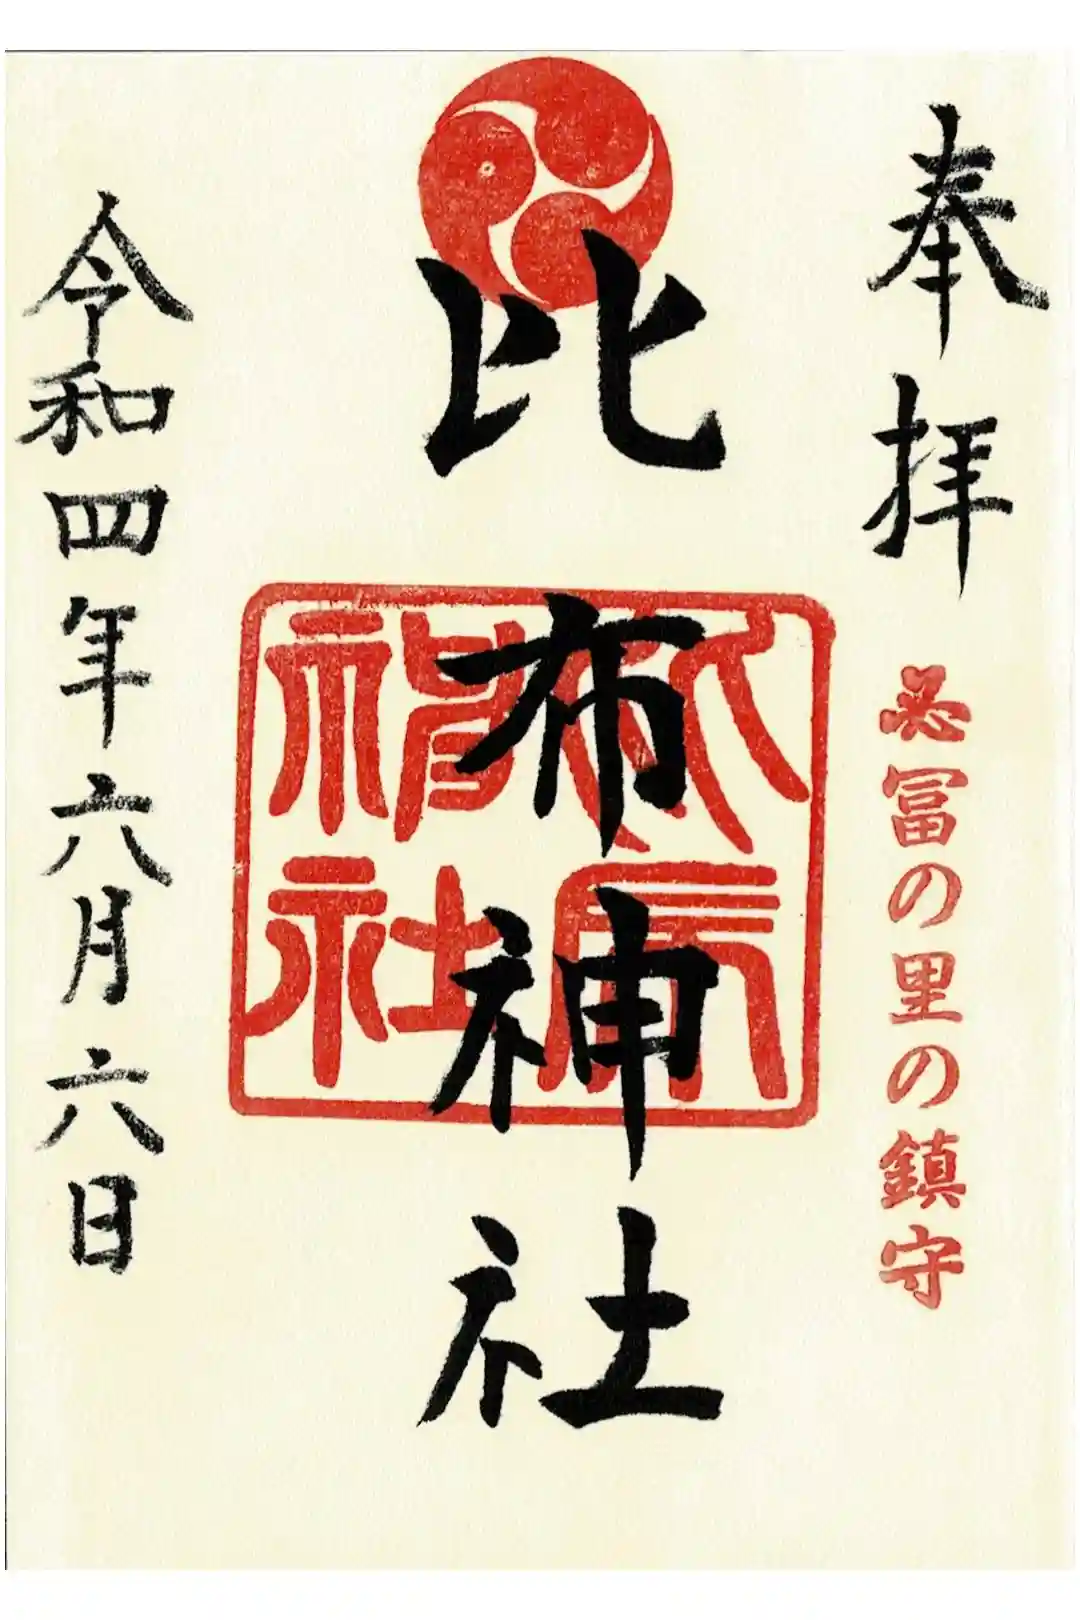 奉拝
冨の里の鎮守
比布神社
比布
神社
令和四年六月六日